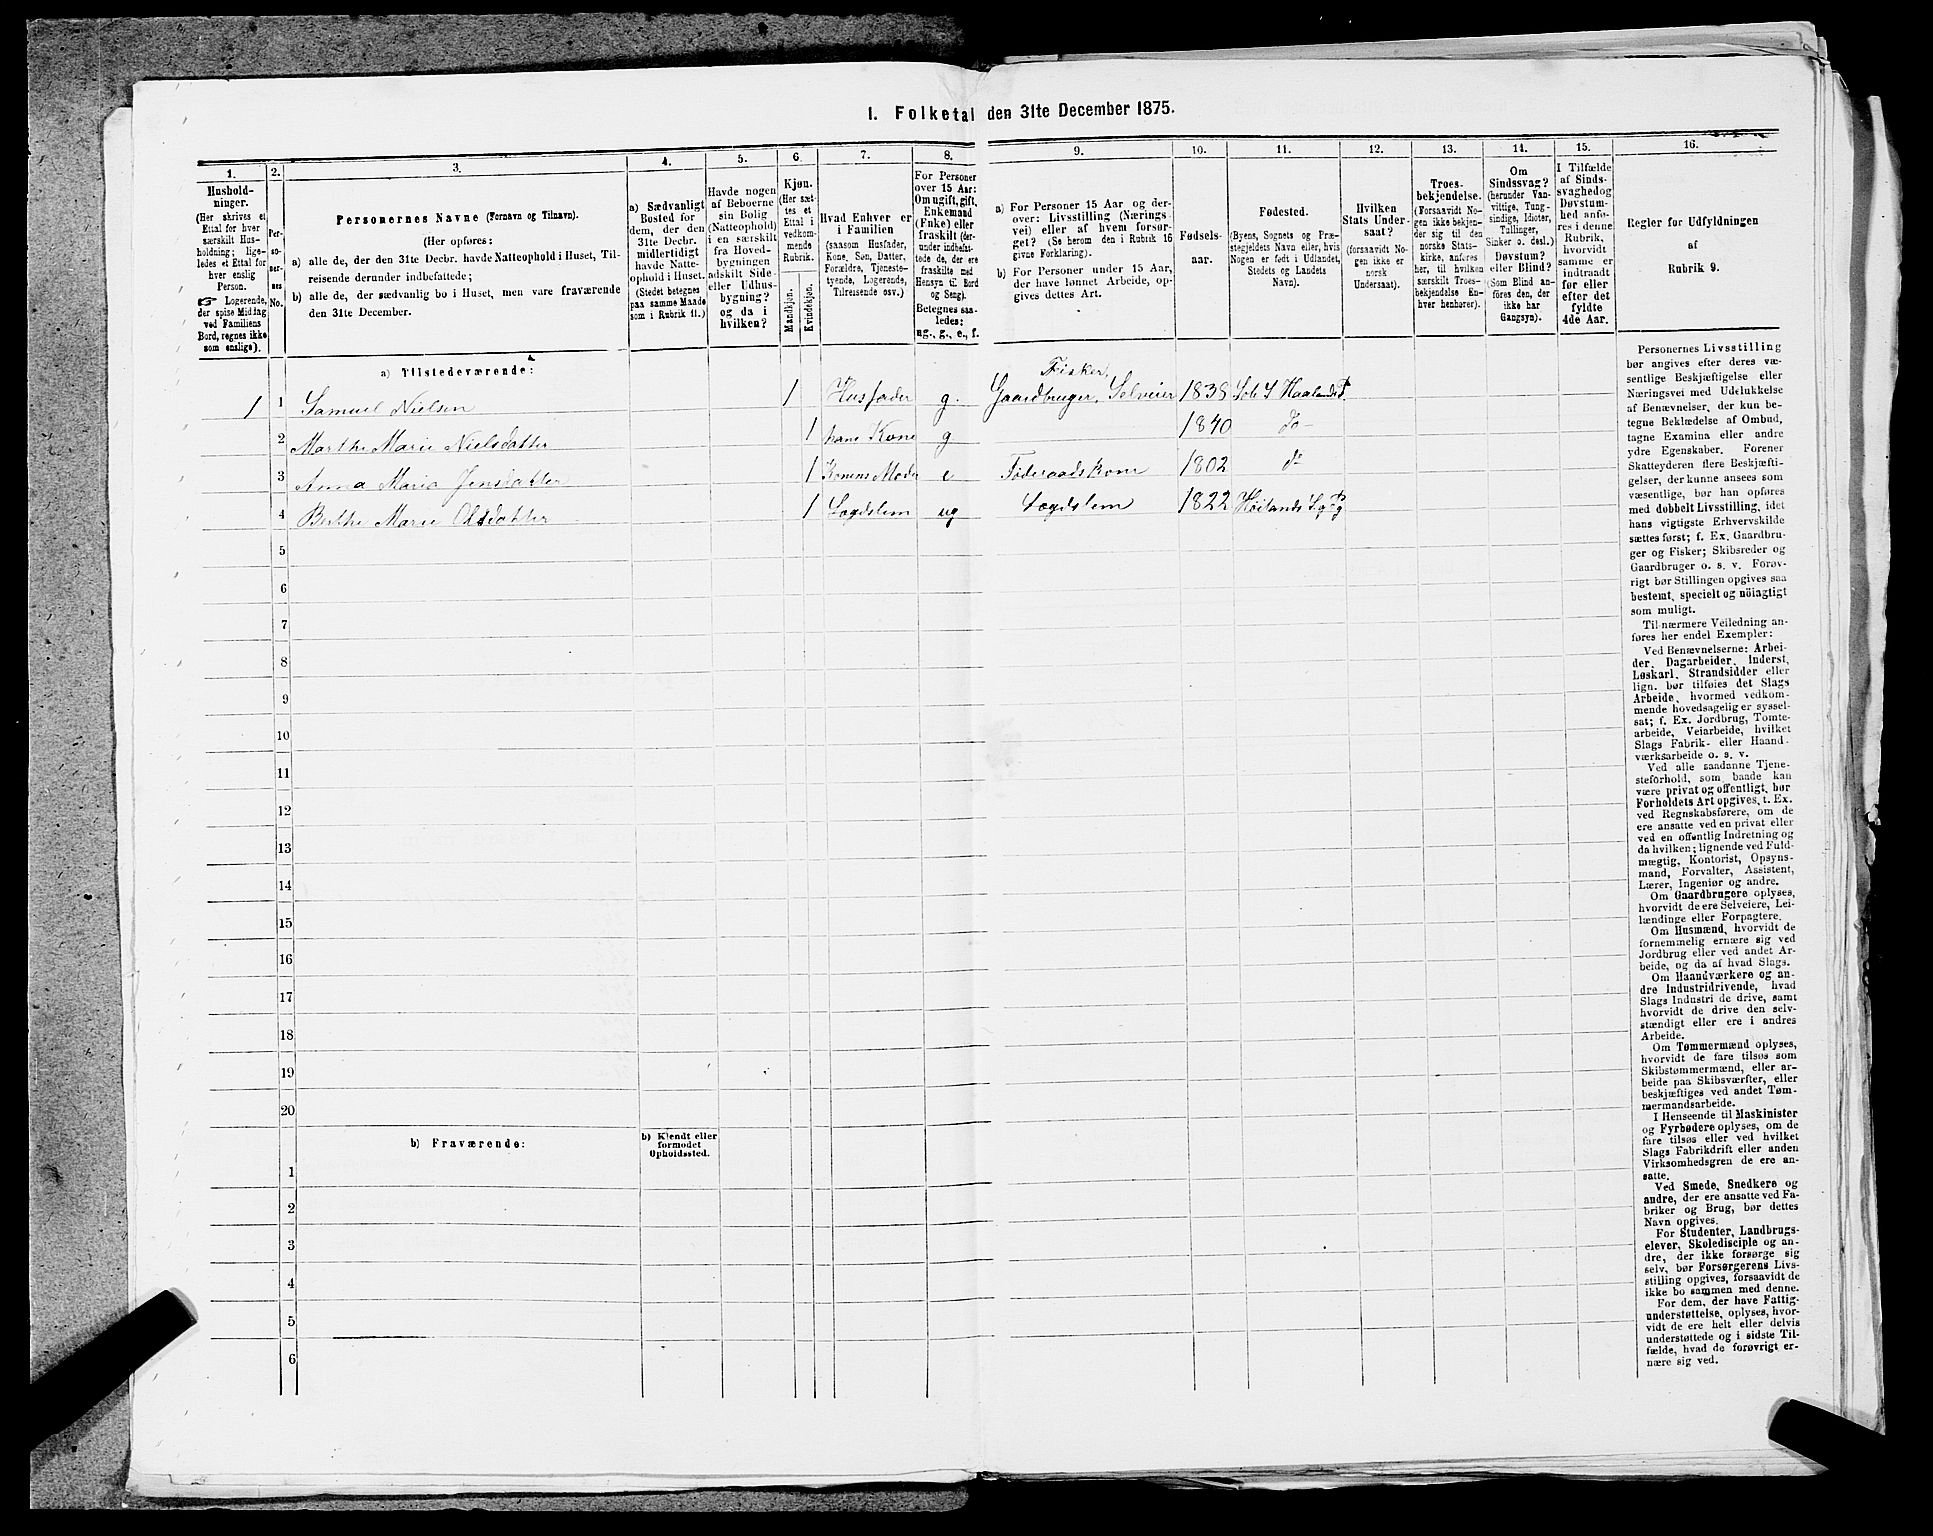 I. Folketal den 31te December 1875.
1.
Hushold-
ninger.
(Her skrives et
Ettal for hver
særskilt Hus-
holdning; lige-
ledes et Ettal for
hver enslig
Person.
☞ Logerende,
der spise Middag
ved Familiens
Bord, regnes ikke
som enslige).
2.
Per-
so-
ner-
nes
No.
3.
Personernes Navne (Fornavn og Tilnavn).
(Her opføres:
a) alle de, der den 31te Decbr. havde Natteophold i Huset, Til-
reisende derunder indbefattede;
b) alle de, der sædvanlig bo i Huset, men vare fraværende
den 31te December.
4.
a) Sædvanligt
Bosted for
dem, der den
31te Decbr.
midlertidigt
havde Natte-
ophold i Huset.
(Stedet betegnes
paa samme Maade
som i Rubrik 11.)
5.
Havde nogen
af Beboerne
sin Bolig
(Natteophold)
i en særskilt
fra Hoved-
bygningen
adskilt Side-
eller Udhus-
bygning?
og da i
hvilken?
6.
Kjøn.
(Her sæt-
tes et
Ettal i
vedkom-
mende
Rubrik.
Mandkjøn.
Kvindekjøn.
7.
Hvad Enhver er
i Familien
(saasom Husfader,
Kone, Søn, Datter,
Forældre, Tjeneste-
tyende, Logerende,
Tilreisende osv.)
8.
For Personer
over 15 Aar:
Om ugift, gift,
Enkemand
(Enke) eller
fraskilt (der-
under indbefat-
tede de, der ere
fraskilte med
Hensyn til Bord
og Seng).
Betegnes saa-
ledes:
ug., g., e., f.
9.
a) For Personer 15 Aar og der-
over: Livsstilling (Nærings-
vei) eller af hvem forsør-
get? (Se herom den i Rubrik 16
givne Forklaring).
b) For Personer under 15 Aar,
der have lønnet Arbeide, op-
gives dettes Art.
10.
Fødsels-
aar.
11.
Fødested.
(Byens, Sognets og Præ-
stegjeldets Navn eller, hvis
Nogen er født i Udlandet,
Stedets og Landets
Navn).
12.
Hvilken
Stats Under-
saat?
(forsaavidt No-
gen ikke er
norsk
Undersaat).
13.
Troes-
bekjendelse.
(Forsaavidt No-
gen ikke bekjen-
der sig til den
norske Stats-
kirke, anføres
her, til hvilken
særskilt Troes-
bekjendelse En-
hver henhører).
14.
Om
Sindssvag?
(herunder Van-
vittige, Tung-
sindige, Idioter,
Tullinger,
Sinker o. desl.)
Døvstum?
eller Blind?
(Som Blind an-
føres den, der
ikke har
Gangsyn).
15.
I Tilfælde
af Sinds-
svaghed og
Døvstum-
hed anfø-
res i denne
Rubrik,
hvorvidt
samme er
indtraadt
før eller
efter det
fyldte
4de Aar.
16.
Regler for Udfyldningen
af
Rubrik 9.
a) Tilstedeværende:
Fisker,
1 1 Samuel Nielsen 1 Husfader g. Gaardbruger, Selveier 1838
2 Marthe Marie Nielsdatter 1 hans Kone g 1840 Do
3 Anna Maria Jensdatter 1 Konens Moder e Föderaadskone 1802 do
4 Berthe Marie Olsdatter 1 Lægdslem ug Lægdslem 1822 Höilands
5
6
7
8
9
10
11
12
13
14
15
16
17
18
19
20
b) Fraværende:
b) Kjendt eller
formodet
Opholdssted.
1
2
3
4
5
6
Personernes Livsstilling
bør angives efter deres væ-
sentlige Beskjæftigelse eller
Næringsvei med Udelukkelse
af Benævnelser, der kun be-
tegne Beklædelse af Ombud,
tagne Examina eller andre
ydre Egenskaber. Forener
Skatteyderen flere Beskjæfti-
gelser, der kunne ansees som
væsentlige, bør han opføres
med dobbelt Livsstilling, idet
hans vigtigste Erhvervskilde
sættes først; f. Ex. Gaardbru-
ger og Fisker; Skibsreder og
Gaardbruger o. s. v. Forøv-
rigt bør Stillingen opgives saa
bestemt, specielt og nöiagtigt
som muligt.
Til nærmere Veiledning an-
føres her endel Exempler:
Ved Benævnelserne: Arbei-
der, Dagarbeider, Inderst,
Løskarl, Strandsidder eller
lign. bør tilføies det Slags
Arbeide, hvormed vedkom-
mende hovedsagelig er syssel-
sat; f. Ex. Jordbrug, Tomte-
arbeide, Veiarbeide, hvilket
Slags Fabrik- eller Haand-
værksarbeide o. s. v.
Ved alle saadanne Tjene-
steförhold, som baade kan
være privat og offentligt, bør
Forholdets Art opgives, t. Ex.
ved Regnskabsførere, om de
ere ansatte ved en privat eller
ved en offentlig Indretning og
da hvilken; lignende ved Fuld-
mægtig, Kontorist, Opsyns-
mand, Forvalter, Assistent,
Lærer, Ingeniør og andre.
Om Gaardbrugere oplyses,
hvorvidt de ere Selveiere, Lei-
lændinge eller Forpagtere.
Om Husmænd, hvorvidt de
fornemmelig ernære sig ved
Jordbrug eller ved andet Ar-
beide, og da af hvad Slags.
Om Haandværkere og an-
dre Industridrivende, hvad
Slags Industri de drive, samt
hvorvidt de drive den selv-
stændigt eller ere i andres
Arbeide.
Om Tømmermænd oplyses,
hvorvidt de fare tilsøs som
Skibstømmermænd, eller ar-
beide paa Skibsværfter, eller
beskjæftiges ved andet Tøm-
mermandsarbeide.
I Henseende til Maskinister
og Fyrbødere oplyses, om de
fare tilsøs eller ved hvilket
Slags Fabrikdrift eller anden
Virksomhedsgren de ere an-
satte.
Ved Smede, Snedkere og
andre, der ere ansatte ved Fa-
briker og Brug, bør dettes
Navn opgives.
For Studenter, Landbrugs-
elever, Skoledisciple og an-
dre, der ikke forsørge sig
selv, bør Forsørgerens Livs-
stilling opgives, forsaavidt de
ikke bo sammen med denne.
For dem, der have Fattig-
understøttelse, oplyses, hvor-
vidt de ere helt eller delvis
understøttede og i sidste Til-
fælde, hvad de forøvrigt er-
nære sig ved.